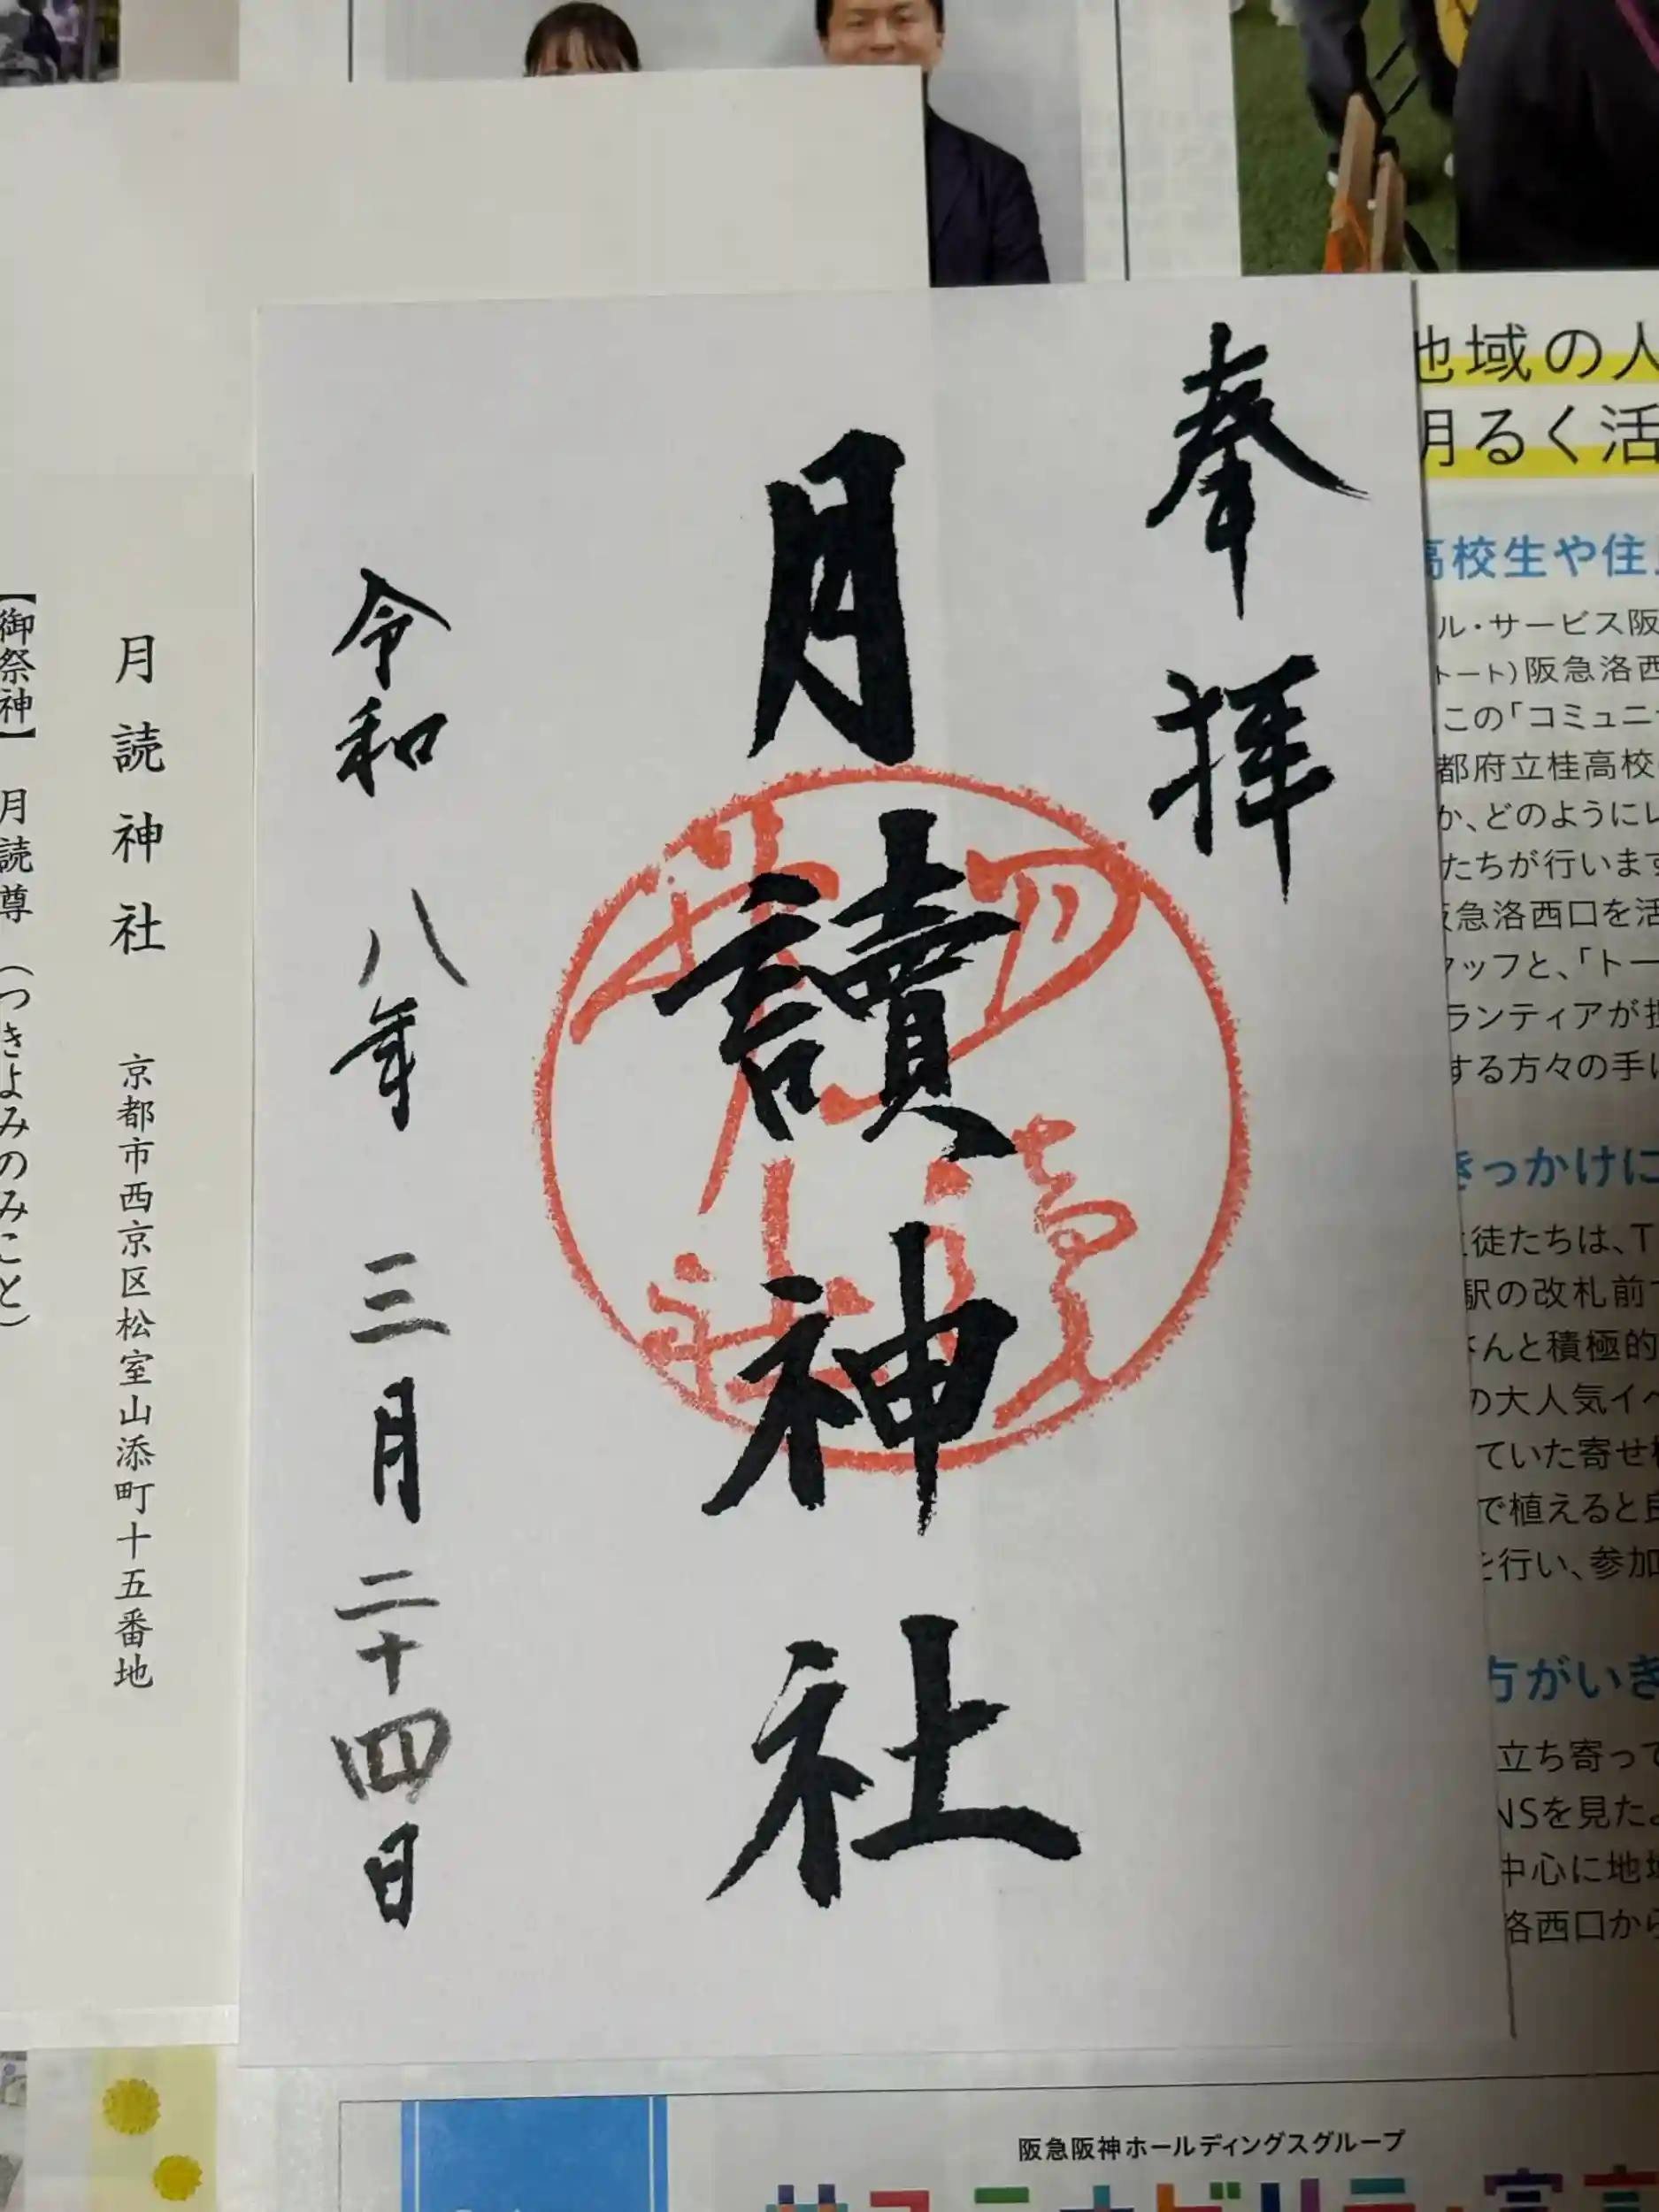 奉拝
月讀神社
令和 八年 三月二十四日
月読神社 京都市西京区松室山添町十五番地
【御祭神】 月読尊 (つきよみのみこと)
地域の人
明るく活
高校生や住
ル・サービス阪
トート)阪急洛西
この「コミュニ
都府立桂高校
か、どのようにレ
たちが行います
阪急洛西口を活
タッフと、「トー
ランティアが
する方々の手に
きっかけに
徒たちは、T
駅の改札前
さんと積極的
の大人気イベ
ていた寄せ
で植えると
を行い、参加
方がいき
立ち寄って
NSを見た
中心に地域
洛西口から
阪急阪神ホールディングスグループ